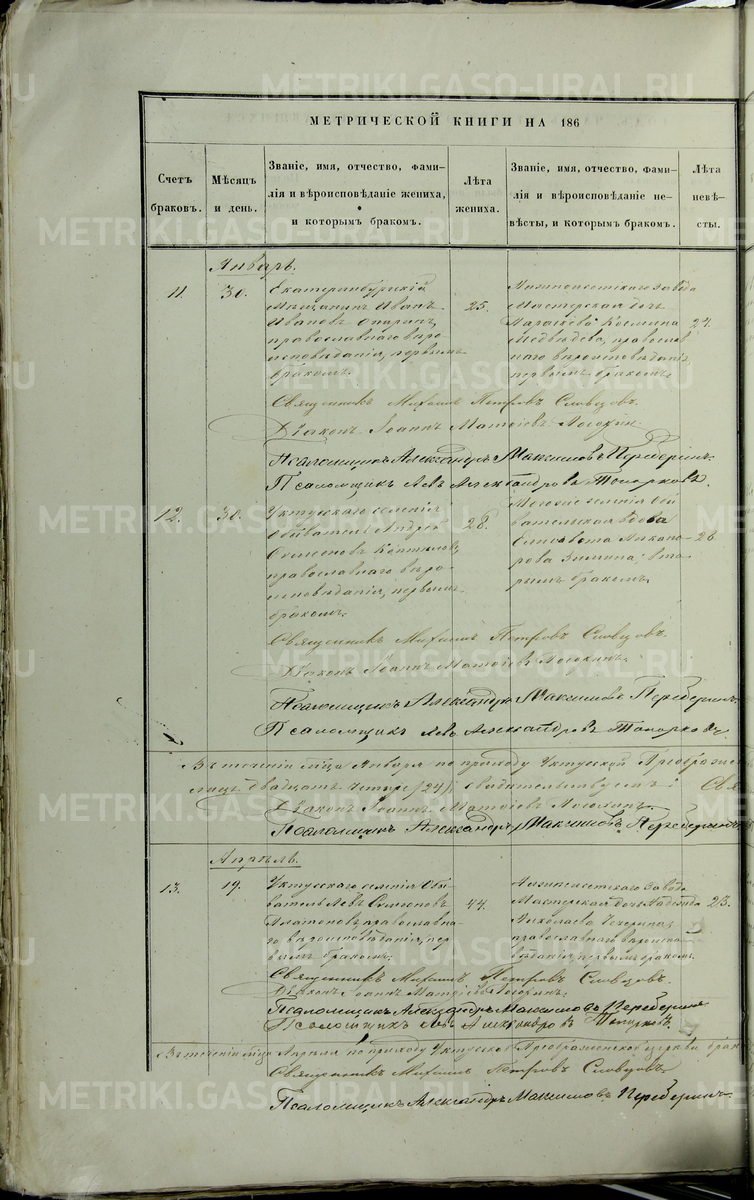 МЕТРИЧЕСКОЙ КНИГИ НА 186
Счетъ браковъ.
Мѣсяцъ и день.
Званіе, имя, отчество, фами-
лія и вѣроисповѣданіе жениха,
и которымъ бракомъ.
Лѣта жениха.
Званіе, имя, отчество, фами-
лія и вѣроисповѣданіе не-
вѣсты, и которымъ бракомъ.
Лѣта невѣ-
сты.
Январь.
11.
30.
Екатеринбургскій
Мѣщанинъ Иванъ
Ивановъ
православнаго вѣро
исповѣданія, первымъ
бракомъ.
25.
Нижнеисетскаго завода
Мастерская дочь
Параскева Космина
Медвѣдева, православ
наго вѣроисповѣданія
первымъ бракомъ.
24.
Священникъ Михаилъ Петровъ Словцовъ.
Діаконъ Іоаннъ
Псаломщикъ Александръ Максимовъ Переберинъ.
Псаломщикъ Левъ Александровъ Топорковъ.
12.
30.
Уктусскаго селенія
обыватель Андрей
Симеоновъ
православнаго вѣро
исповѣданія, первымъ
бракомъ.
28.
селенія Обы
вательская вдова
Елисавета Никано
рова Зимина, вто
рымъ бракомъ.
26
Священникъ Михаилъ Петровъ Словцовъ.
Діаконъ Іоаннъ
Псаломщикъ Александръ Максимовъ Переберинъ.
Псаломщикъ Левъ Александровъ Топорковъ
Въ теченіи мѣсца Января по приходу Уктусской Преображен
лицъ двадцать четыре (24), свидѣтельствуемъ: Свя
Діаконъ Іоаннъ
Псаломщикъ Александръ Максимовъ Переберинъ
Апрѣль.
13.
19.
Уктусскаго селенія Обы-
ватель Левъ Симеоновъ
Платоновъ, православна-
го вѣроисповѣданія, пер
вымъ бракомъ.
44.
Нижнеисетскаго Завода
Мастерская дочь Надежда
Николаева
православнаго вѣроиспо-
вѣданія, первымъ бракомъ.
23.
Священникъ Михаилъ Петровъ Словцовъ.
Діаконъ Іоаннъ
Псаломщикъ Александръ Максимовъ Переберинъ
Псаломщикъ Левъ Александровъ Топорковъ.
Въ теченіи мѣсца Апрѣля по приходу Уктусско Преображенской церкви брак
Священникъ Михаилъ Петровъ Словцовъ
Псаломщикъ Александръ Максимовъ Переберинъ.
METRIKI.GASO-URAL.RU